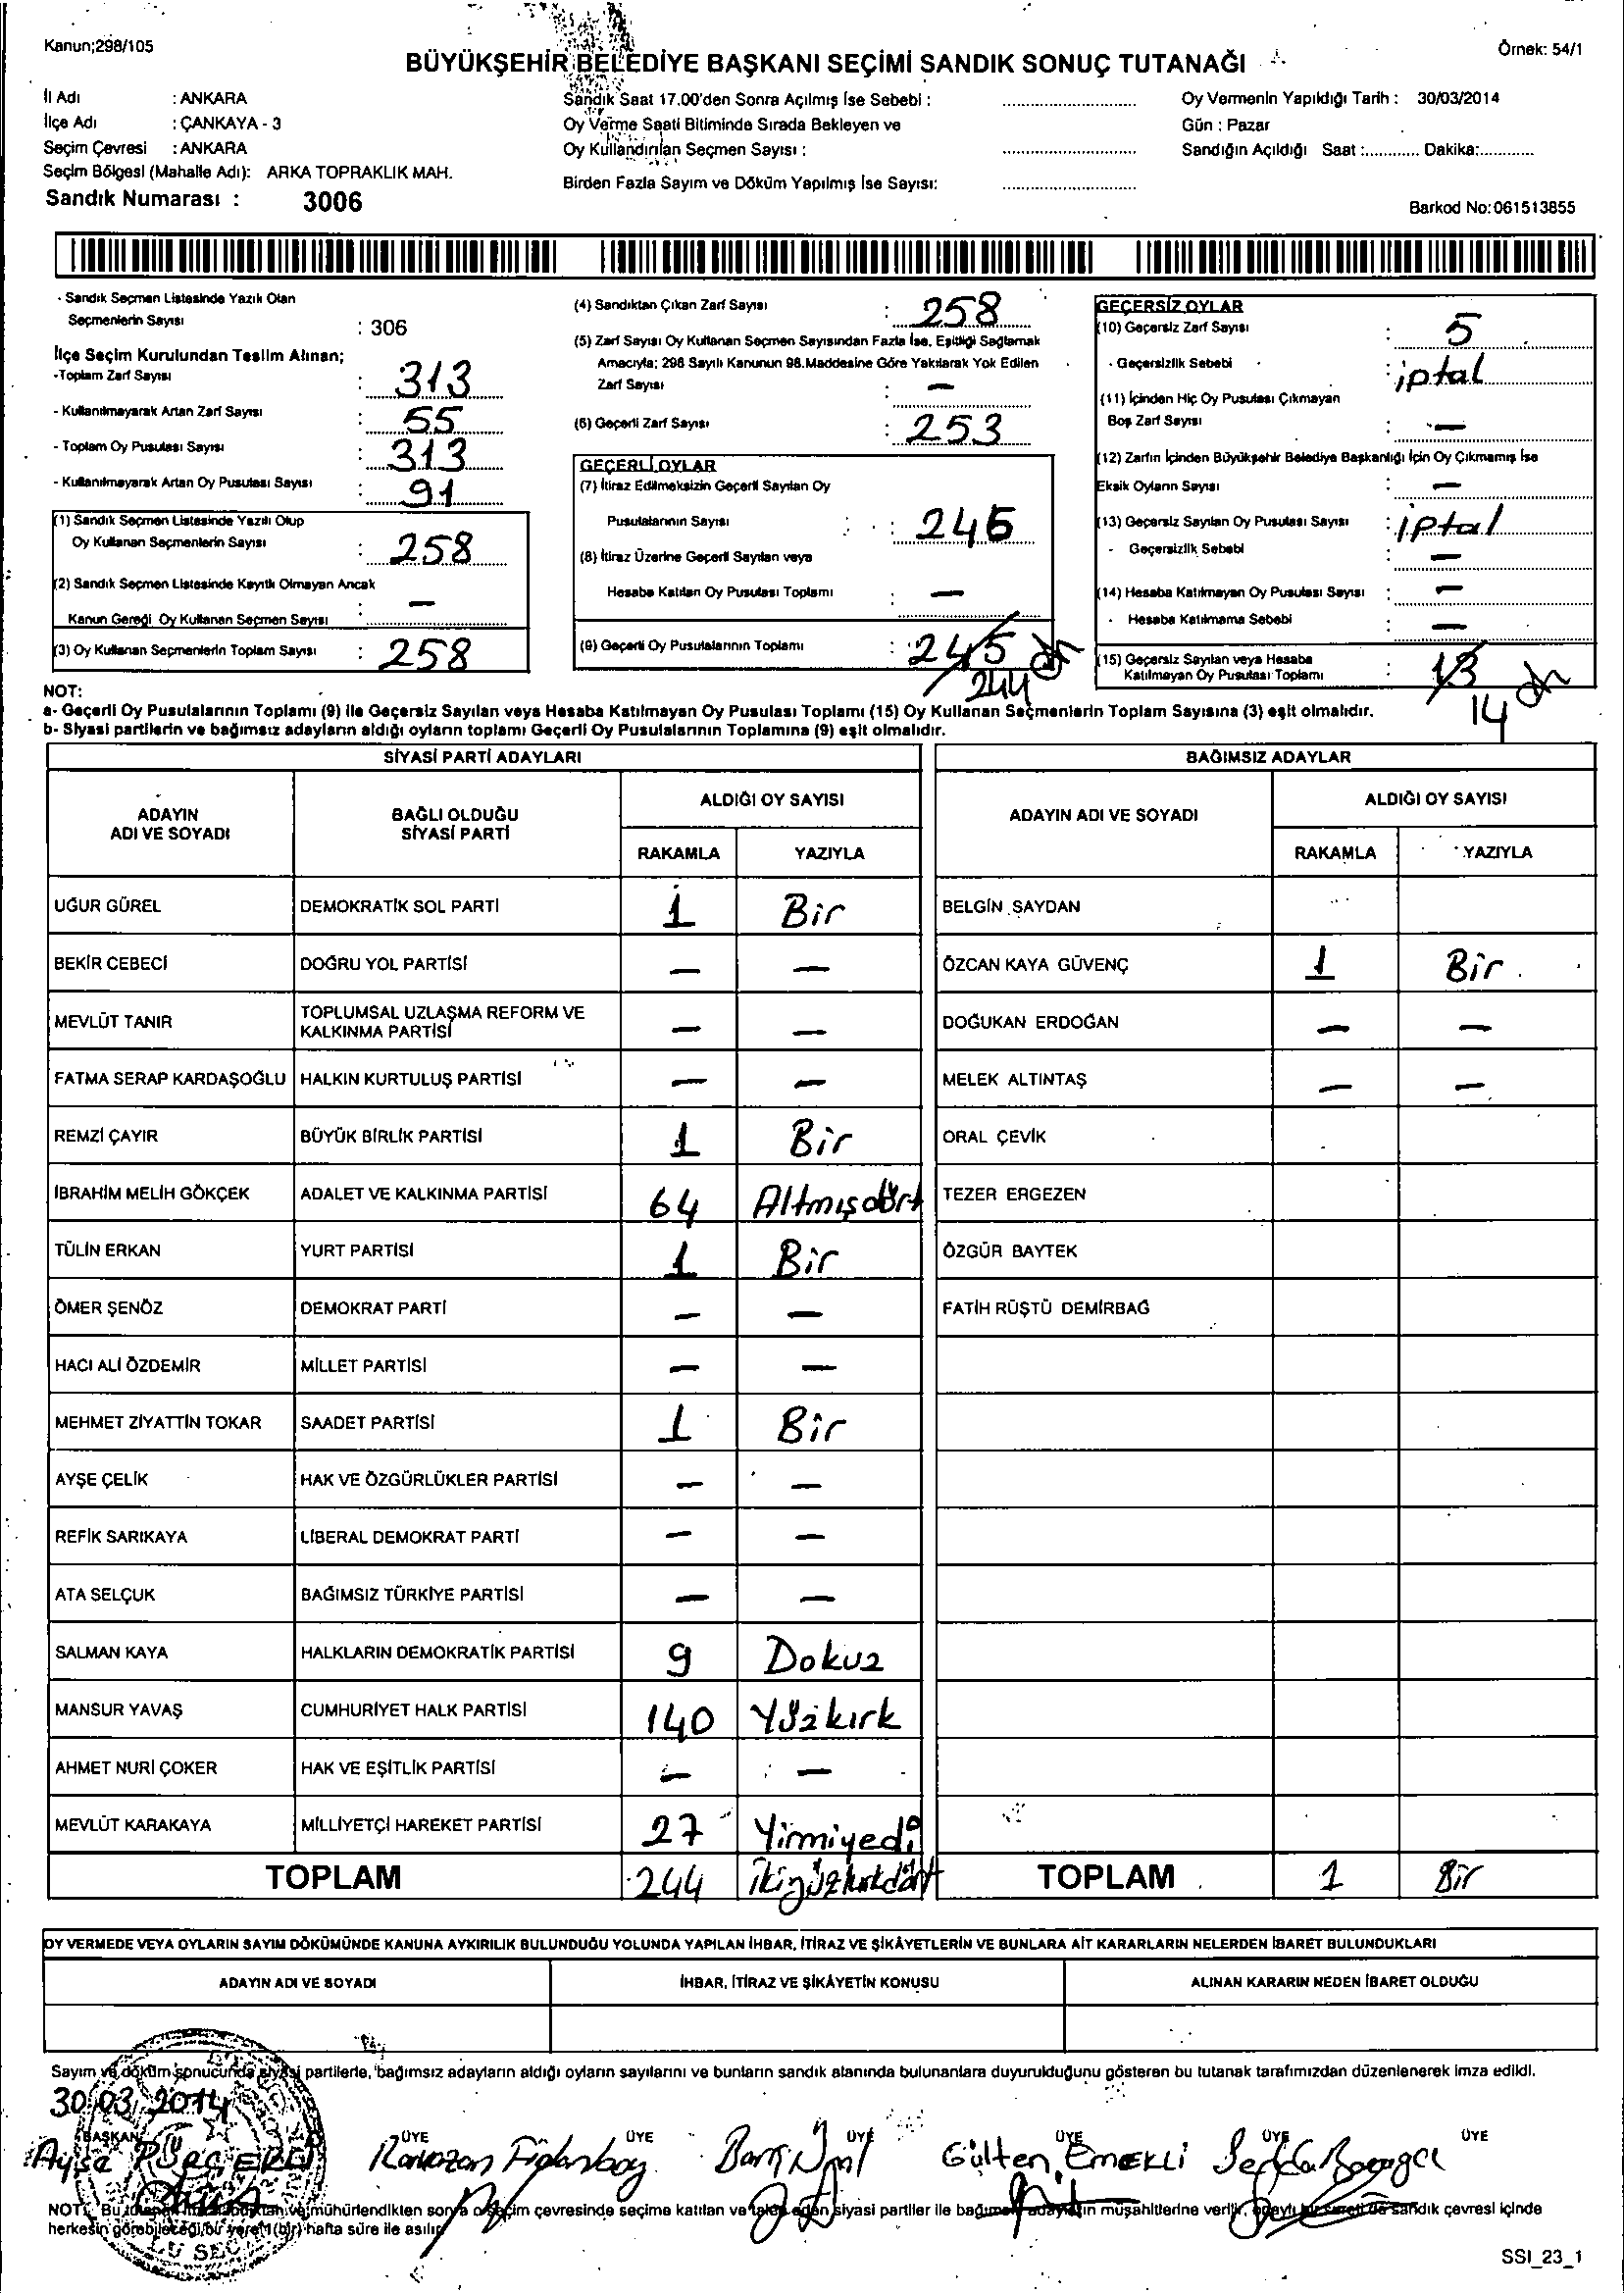 Kanun;298/105
Örnek: 54/1
BÜYÜKŞEHİR BELEDİYE BAŞKANI SEÇİMİ SANDIK SONUÇ TUTANAĞI
İl Adı : ANKARA
İlçe Adı : ÇANKAYA - 3
Seçim Çevresi : ANKARA
Seçim Bölgesi (Mahalle Adı): ARKA TOPRAKLIK MAH.
Sandık Numarası : 3006
Sandık Saat 17.00'den Sonra Açılmış İse Sebebi :
Oy Verme Saati Bitiminde Sırada Bekleyen ve
Oy Kullandırılan Seçmen Sayısı :
Birden Fazla Sayım ve Döküm Yapılmış İse Sayısı:
Oy Vermenin Yapıldığı Tarih : 30/03/2014
Gün : Pazar
Sandığın Açıldığı Saat :............ Dakika:............
Barkod No:061513855
- Sandık Seçmen Listesinde Yazılı Olan
Seçmenlerin Sayısı : 306
İlçe Seçim Kurulundan Teslim Alınan;
-Toplam Zarf Sayısı : 313
- Kullanılmayarak Artan Zarf Sayısı : 55
- Toplam Oy Pusulası Sayısı : 313
- Kullanılmayarak Artan Oy Pusulası Sayısı : 91
(1) Sandık Seçmen Listesinde Yazılı Olup
Oy Kullanan Seçmenlerin Sayısı : 258
(2) Sandık Seçmen Listesinde Kayıtlı Olmayan Ancak
Kanun Gereği Oy Kullanan Seçmen Sayısı : —
(3) Oy Kullanan Seçmenlerin Toplam Sayısı : 258
(4) Sandıktan Çıkan Zarf Sayısı : 258
(5) Zarf Sayısı Oy Kullanan Seçmen Sayısından Fazla İse, Eşitliği Sağlamak
Amacıyla; 298 Sayılı Kanunun 98.Maddesine Göre Yakılarak Yok Edilen
Zarf Sayısı : —
(6) Geçerli Zarf Sayısı : 253
GEÇERLİ OYLAR
(7) İtiraz Edilmeksizin Geçerli Sayılan Oy
Pusulalarının Sayısı : 245
(8) İtiraz Üzerine Geçerli Sayılan veya
Hesaba Katılan Oy Pusulası Toplamı : —
(9) Geçerli Oy Pusulalarının Toplamı : 245
244
GEÇERSİZ OYLAR
(10) Geçersiz Zarf Sayısı : 5
- Geçersizlik Sebebi : iptal
(11) İçinden Hiç Oy Pusulası Çıkmayan
Boş Zarf Sayısı : —
(12) Zarfın İçinden Büyükşehir Belediye Başkanlığı İçin Oy Çıkmamış İse
Eksik Oyların Sayısı : —
(13) Geçersiz Sayılan Oy Pusulası Sayısı : iptal
- Geçersizlik Sebebi : —
(14) Hesaba Katılmayan Oy Pusulası Sayısı : —
- Hesaba Katılmama Sebebi : —
(15) Geçersiz Sayılan veya Hesaba
Katılmayan Oy Pusulası Toplamı : 13
14
NOT:
a- Geçerli Oy Pusulalarının Toplamı (9) ile Geçersiz Sayılan veya Hesaba Katılmayan Oy Pusulası Toplamı (15) Oy Kullanan Seçmenlerin Toplam Sayısına (3) eşit olmalıdır.
b- Siyasi partilerin ve bağımsız adayların aldığı oyların toplamı Geçerli Oy Pusulalarının Toplamına (9) eşit olmalıdır.
SİYASİ PARTİ ADAYLARI
ADAYIN ADI VE SOYADI
BAĞLI OLDUĞU SİYASİ PARTİ
ALDIĞI OY SAYISI
RAKAMLA YAZIYLA
UĞUR GÜREL DEMOKRATİK SOL PARTİ 1 Bir
BEKİR CEBECİ DOĞRU YOL PARTİSİ — —
MEVLÜT TANIR TOPLUMSAL UZLAŞMA REFORM VE KALKINMA PARTİSİ — —
FATMA SERAP KARDAŞOĞLU HALKIN KURTULUŞ PARTİSİ — —
REMZİ ÇAYIR BÜYÜK BİRLİK PARTİSİ 1 Bir
İBRAHİM MELİH GÖKÇEK ADALET VE KALKINMA PARTİSİ 64 Altmışdört
TÜLİN ERKAN YURT PARTİSİ 1 Bir
ÖMER ŞENÖZ DEMOKRAT PARTİ — —
HACI ALİ ÖZDEMİR MİLLET PARTİSİ — —
MEHMET ZİYATTİN TOKAR SAADET PARTİSİ 1 Bir
AYŞE ÇELİK HAK VE ÖZGÜRLÜKLER PARTİSİ — —
REFİK SARIKAYA LİBERAL DEMOKRAT PARTİ — —
ATA SELÇUK BAĞIMSIZ TÜRKİYE PARTİSİ — —
SALMAN KAYA HALKLARIN DEMOKRATİK PARTİSİ 9 Dokuz
MANSUR YAVAŞ CUMHURİYET HALK PARTİSİ 140 Yüzkırk
AHMET NURİ ÇOKER HAK VE EŞİTLİK PARTİSİ — —
MEVLÜT KARAKAYA MİLLİYETÇİ HAREKET PARTİSİ 27 Yirmiyedi
TOPLAM 244 İkiyüzkırkdört
BAĞIMSIZ ADAYLAR
ADAYIN ADI VE SOYADI
ALDIĞI OY SAYISI
RAKAMLA YAZIYLA
BELGİN SAYDAN
ÖZCAN KAYA GÜVENÇ 1 Bir
DOĞUKAN ERDOĞAN — —
MELEK ALTINTAŞ — —
ORAL ÇEVİK
TEZER ERGEZEN
ÖZGÜR BAYTEK
FATİH RÜŞTÜ DEMİRBAĞ
TOPLAM 1 Bir
OY VERMEDE VEYA OYLARIN SAYIM DÖKÜMÜNDE KANUNA AYKIRILIK BULUNDUĞU YOLUNDA YAPILAN İHBAR, İTİRAZ VE ŞİKÂYETLERİN VE BUNLARA AİT KARARLARIN NELERDEN İBARET BULUNDUKLARI
ADAYIN ADI VE SOYADI
İHBAR, İTİRAZ VE ŞİKÂYETİN KONUSU
ALINAN KARARIN NEDEN İBARET OLDUĞU
Sayım ve döküm sonucunda siyasi partilerle, bağımsız adayların aldığı oyların sayılarını ve bunların sandık alanında bulunanlara duyurulduğunu gösteren bu tutanak tarafımızdan düzenlenerek imza edildi.
30.03.2014
BAŞKAN ÜYE ÜYE ÜYE ÜYE ÜYE ÜYE
Ayşe Ramazan Barış Gülten EMEKLİ
NOT: Bu mühürlendikten sonra o seçim çevresinde seçime katılan ve talep eden siyasi partiler ile bağımsız adayların müşahitlerine verilir, onaylı bir sureti de sandık çevresi içinde
herkesin görebileceği bir yere 1 (bir) hafta süre ile asılır.
SSI_23_1